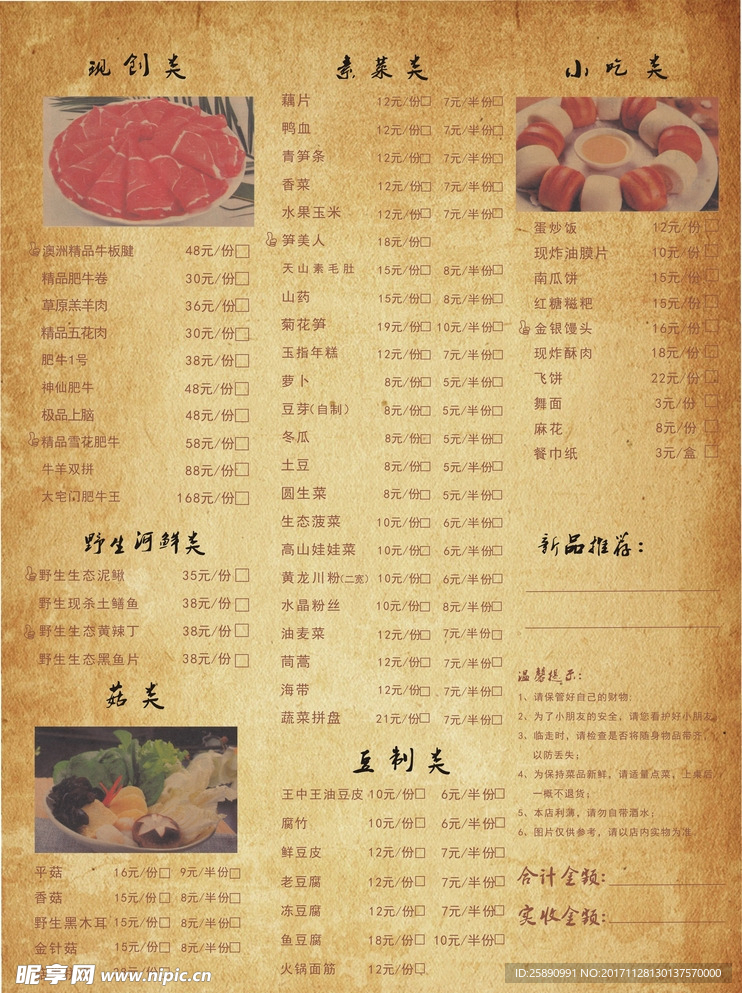 现创类
澳洲精品牛板腱 48元/份
精品肥牛卷 30元/份
草原羔羊肉 36元/份
精品五花肉 30元/份
肥牛1号 38元/份
神仙肥牛 48元/份
极品上脑 48元/份
精品雪花肥牛 58元/份
牛羊双拼 88元/份
大宅门肥牛王 168元/份
野生河鲜类
野生生态泥鳅 35元/份
野生现杀土鳝鱼 38元/份
野生生态黄辣丁 38元/份
野生生态黑鱼片 38元/份
菇类
平菇 16元/份 9元/半份
香菇 15元/份 8元/半份
野生黑木耳 15元/份 8元/半份
金针菇 15元/份 8元/半份
素菜类
藕片 12元/份 7元/半份
鸭血 12元/份 7元/半份
青笋条 12元/份 7元/半份
香菜 12元/份 7元/半份
水果玉米 12元/份 7元/半份
笋美人 18元/份
天山素毛肚 15元/份 8元/半份
山药 15元/份 8元/半份
菊花笋 19元/份 10元/半份
玉指年糕 12元/份 7元/半份
萝卜 8元/份 5元/半份
豆芽(自制) 8元/份 5元/半份
冬瓜 8元/份 5元/半份
土豆 8元/份 5元/半份
圆生菜 8元/份 5元/半份
生态菠菜 10元/份 6元/半份
高山娃娃菜 10元/份 6元/半份
黄龙川粉(二宽) 10元/份 6元/半份
水晶粉丝 10元/份 8元/半份
油麦菜 12元/份 7元/半份
茼蒿 12元/份 7元/半份
海带 12元/份 7元/半份
蔬菜拼盘 21元/份 7元/半份
豆制类
王中王油豆皮 10元/份 6元/半份
腐竹 10元/份 6元/半份
鲜豆皮 12元/份 7元/半份
老豆腐 12元/份 7元/半份
冻豆腐 12元/份 7元/半份
鱼豆腐 18元/份 10元/半份
火锅面筋 12元/份
小吃类
蛋炒饭 12元/份
现炸油膜片 10元/份
南瓜饼 15元/份
红糖糍粑 15元/份
金银馒头 16元/份
现炸酥肉 18元/份
飞饼 22元/份
舞面 3元/份
麻花 8元/份
餐巾纸 3元/盒
新品推荐：
温馨提示：
1、请保管好自己的财物；
2、为了小朋友的安全，请您看护好小朋友
3、临走时，请检查是否将随身物品带齐，
以防丢失；
4、为保持菜品新鲜，请适量点菜，上桌后
一概不退货；
5、本店利薄，请勿自带酒水；
6、图片仅供参考，请以店内实物为准。
合计金额：
实收金额：
昵享网 www.nipic.cn
ID:25890991 NO:20171128130137570000